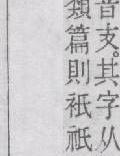 音支。其字从
類篇則衹祇